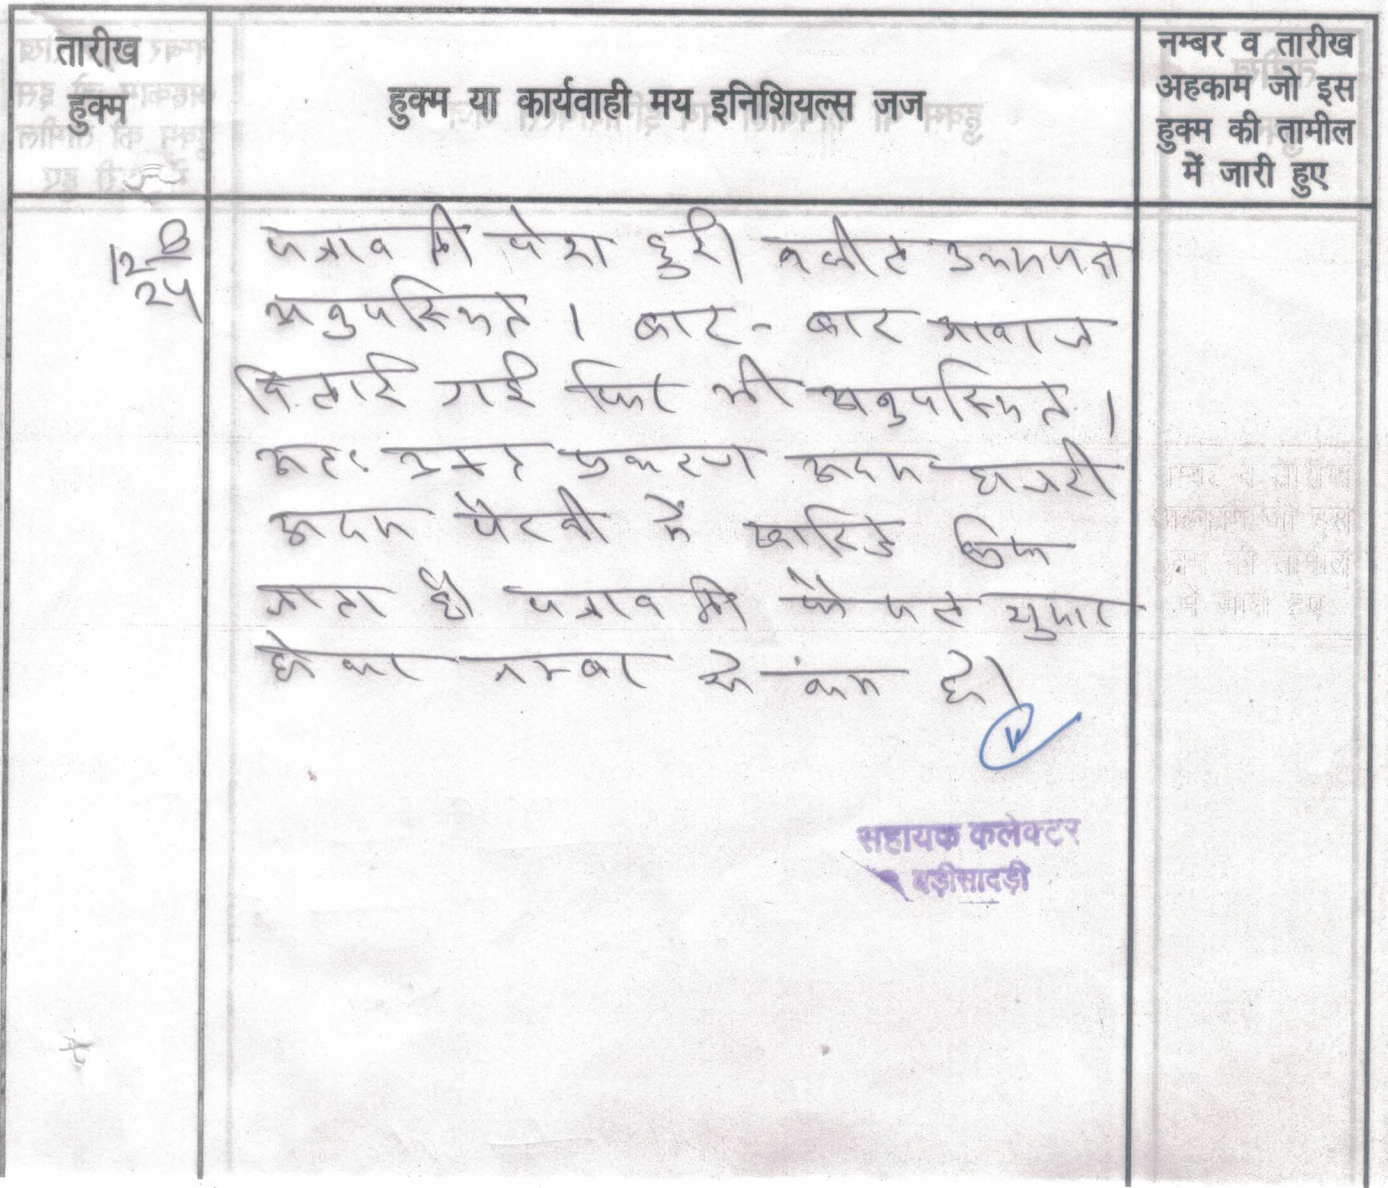 तारीख
हुक्म
हुक्म या कार्यवाही मय इनिशियल्स जज
नम्बर व तारीख
अहकाम जो इस
हुक्म की तामील
में जारी हुए
12/8/24
पत्रावली पेश हुई। वकील उभयपक्ष
अनुपस्थित । बार - बार आवाज
दिलाई गई फिर भी अनुपस्थित ।
अतः उक्त प्रकरण अदम हाजरी
अदम पैरवी में खारिज किया
जाता है। पत्रावली फैसल शुमार
होकर नम्बर से कम हो।
सहायक कलेक्टर
बड़ीसादड़ी